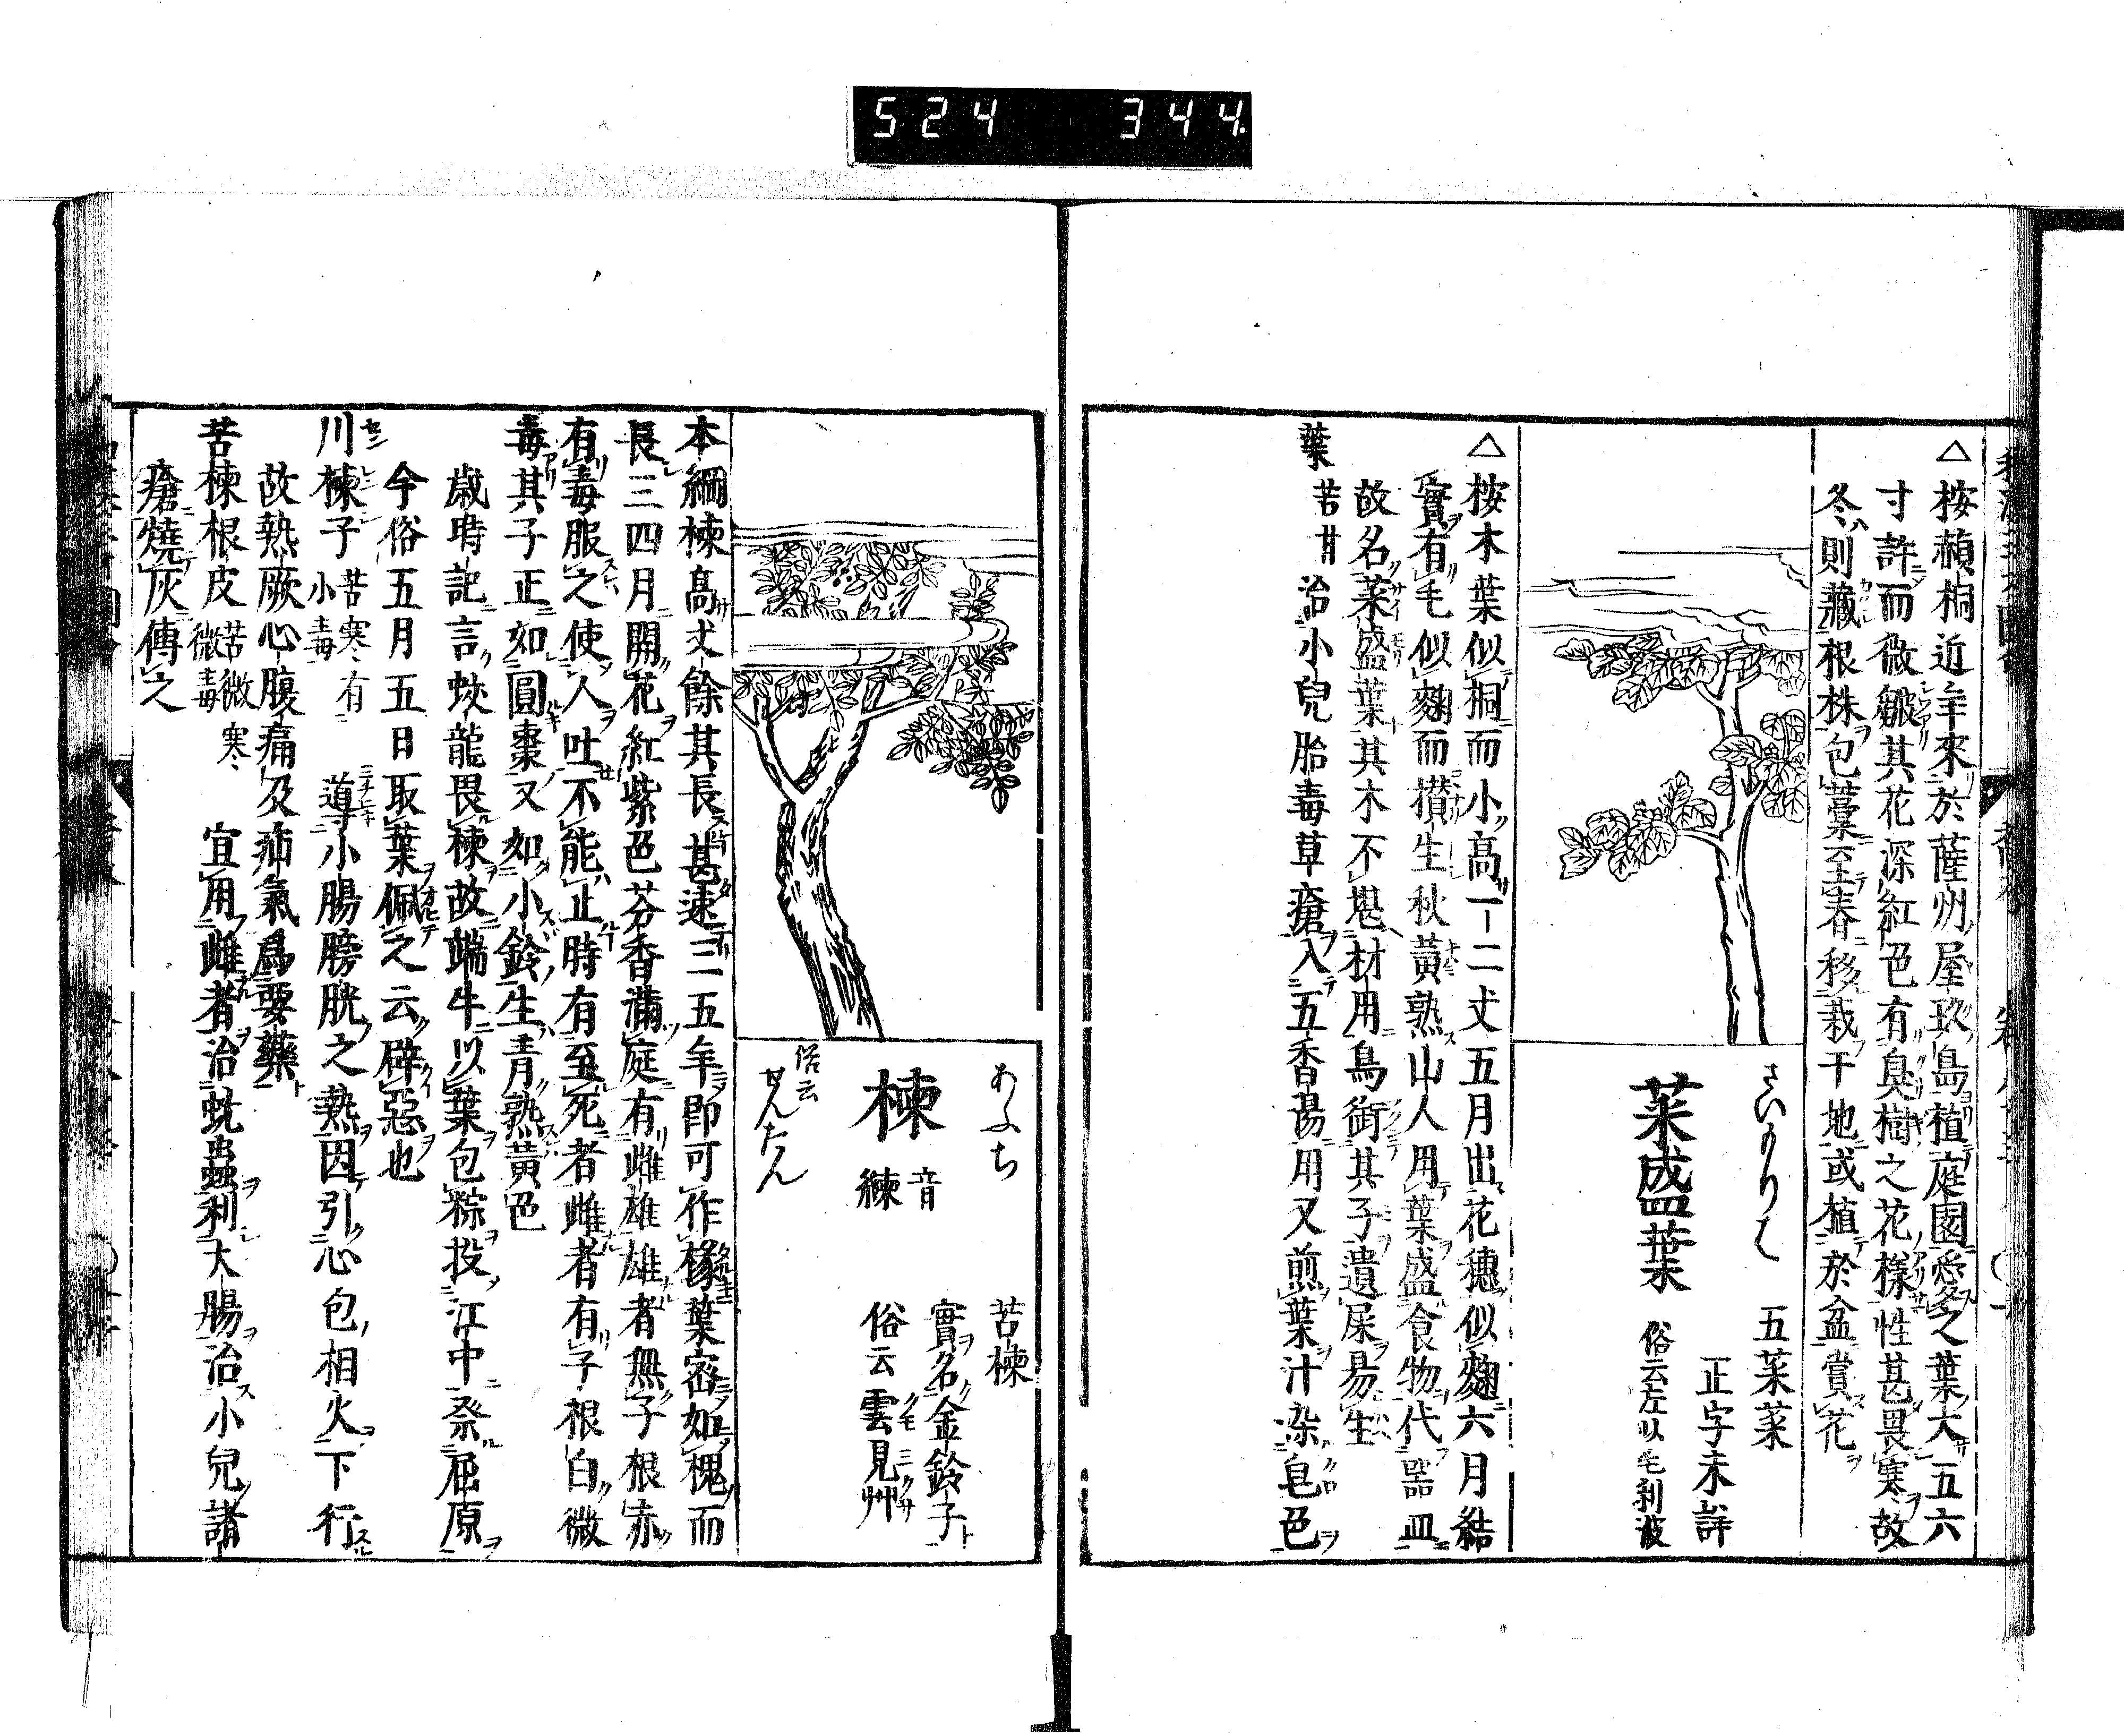 524 344.
△按赬桐近年來於薩州屋玖島植庭園愛之葉大五六
寸許而微皺其花深紅色有臭樹之花樣性甚畏寒故
冬則藏根株包藁至春移栽干地或植於盆賞花
さいもりは
五菜菜
正字未詳
菜盛葉
俗云左以毛利波
△按木葉似桐而小高一二丈五月出花穗似麹六月結
實有毛似麹而攅生秋黃熟山人用葉盛食物代器皿
故名菜盛葉其木不堪材用鳥銜其子遺屎易生
葉 苦甘 治小兒胎毒草瘡入五香湯用又煎葉汁染皂色
あふち
楝
音練
俗云
せんたん
苦楝
實名金鈴子
俗云雲見艸
本綱楝高丈餘其長甚速三五年即可作椽葉密如槐而
長三四月開花紅紫色芬香滿庭有雌雄雄者無子根赤
有毒服之使人吐不能止時有至死者雌者有子根白微
毒其子正如圓棗又如小鈴生青熟黃色
歲時記言蛟龍畏楝故端午以葉包粽投江中祭屈原
今俗五月五日取葉佩之云辟惡也
川楝子 苦寒有小毒 導小腸膀胱之熱因引心包相火下行
故熱厥心腹痛及疝氣爲要藥
苦楝根皮 苦微寒微毒 宜用雌者治蚘蟲利大腸治小兒諸
瘡燒灰傳之